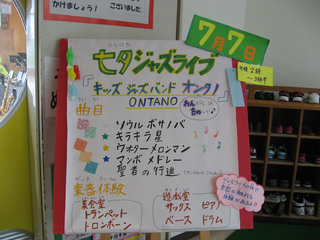 かけましょう！
ございました。
7月7日
七夕ジャズライブ
キッズ ジャズバンド オンタノ
ONTANO
曲目
ソウル ボサノバ
キラキラ星
ウォーターメロンマン
マンボ メドレー
聖者の行進
楽器体験
美食室
トランペット
トロンボーン
遊戯室
サックス ピアノ
ベース ドラム